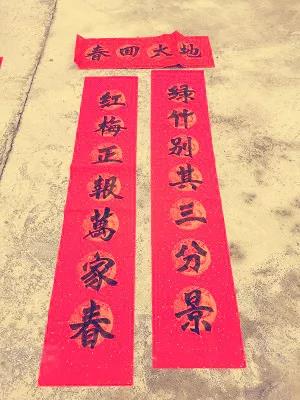 春回大地
绿竹别其三分景
红梅正報萬家春